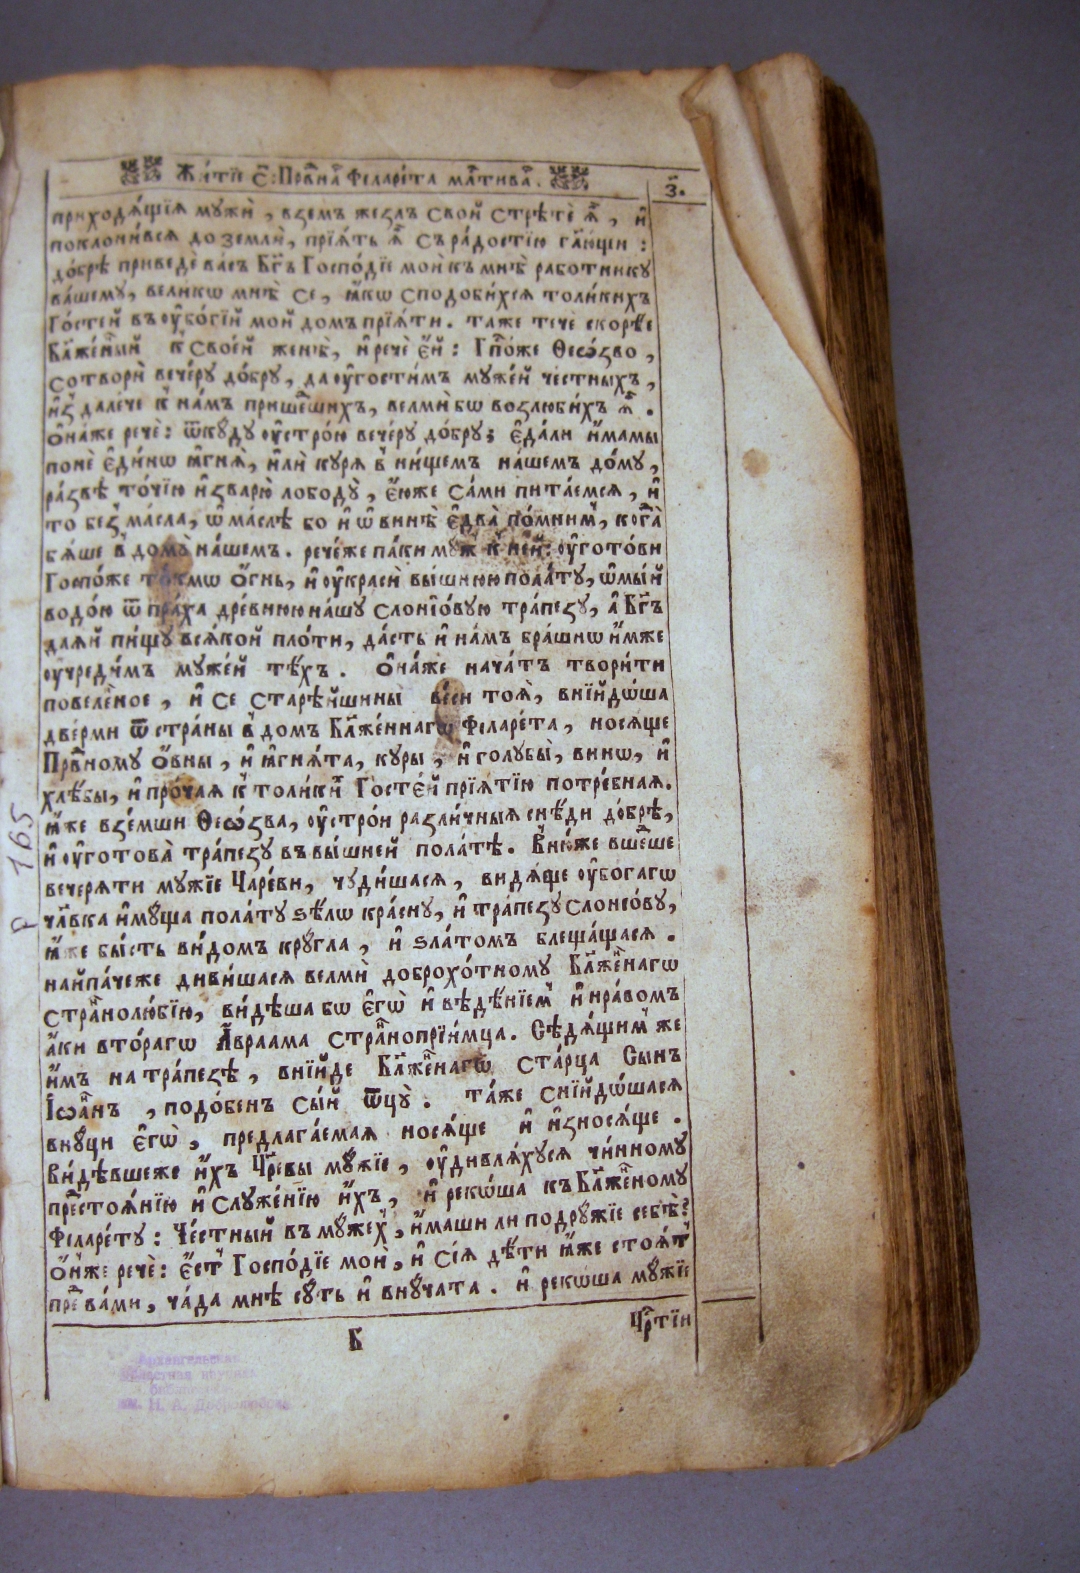 Жи́тїе С: Прⷣвнаⷢ҇ Фїларе́та млⷭ҇тиваⷢ҇. з҃.
приходѧ́щїѧ мꙋжѝ, вземъ жезлъ свой стрѣ́те ѧ҆̀, и҆
поклони́всѧ до землѝ, прїѧ́тъ ѧ҆̀ съ ра́достїю гл҃ющи:
до́брѣ приведѐ ва́съ Бг҃ъ Госпо́дїе моѝ къ мнѣ̀ работникꙋ
ва́шемꙋ, великѡ мнѣ̀ се, ꙗ҆́кѡ сподоби́хсѧ толи́кихъ
Го́стей въ ᲂу҆бо́гїй мой дом прїѧ́ти. таже течѐ скорѣ́е
Бл҃же́нный к̾ свое́й женѣ̀, и҆ речѐ є҆́й: Гпⷭ҇о́же Ѳеѡ́зво,
сотворѝ вече́рꙋ до́брꙋ, да ᲂу҆гости́мъ мꙋже́й че́стныхъ,
и҆з̾ дале́че к̾ на́мъ прише́дшихъ, велмѝ бѡ возлюби́хъ ѧ҆̀.
ѻ҆на́же речѐ: ѿкꙋ́дꙋ ᲂу҆стро́ю вече́рꙋ до́брꙋ; є҆да́ли и҆́мамы
понѐ є҆ди́нѡ ꙗ҆гнѧ̀, и҆лѝ кꙋрѧ в̾ ни́щемъ на́шемъ до́мꙋ,
ра́звѣ то́чїю и҆зварю̀ лободꙋ̀, є҆́юже са́ми пита́емсѧ, и҆
то без̾ ма́сла, ѡ҆ ма́слѣ бо и҆ ѡ҆ винѣ̀ є҆два̀ по́мним̾, когда̀
бѧ́ше в̾ домꙋ̀ на́шемъ. рече́же па́ки мꙋ́ж̾ к̾ не́й: ᲂу҆гото́ви
Госпо́же то́кмѡ ѻ҆́гнь, и҆ ᲂу҆красѝ вы́шнюю пола́тꙋ, ѡ҆мы́й
водо́ю ѿ пра́ха дре́внюю на́шꙋ слоно́вꙋю тра́пезꙋ, а҆ Бг҃ъ
даѧ́й пи́щꙋ всѧ́кой пло́ти, да́сть и҆ на́мъ бра́шнѡ и҆́мже
ᲂу҆чреди́мъ мꙋже́й тѣ́хъ. Ѻ҆на́же нача́тъ твори́ти
повеле́ное, и҆ се старѣ́йшины ве́си тоѧ̀, вни́йдѡ́ша
две́рми ѿ страны̀ в̾ домъ Бл҃же́ннагѡ Фїларе́та, носѧ́ще
Прⷣвномꙋ ѻ҆́вны, и҆ ꙗ҆гнѧ́та, кꙋры, и҆ голꙋбы̀, винѡ, и҆
хлѣ́бы, и҆ про́чаѧ к̾ толи́ки҆ⷯ Го́сте́й прїѧ́тїю потре́бнаѧ.
ꙗ҆́же взе́мши Ѳеѡ́зва, ᲂу҆стро́и разли́чныѧ снѣ́ди до́брѣ,
и҆ ᲂу҆гото́ва тра́пезꙋ въ вы́шней пола́тѣ. В̾ню́же вше́дше
вечерѧти мꙋжїе Ца́реви, чꙋди́шасѧ, видѧ́ще ᲂу҆бо́гагѡ
чл҃вка и҆мꙋ́ща пола́тꙋ ѕѣ́лѡ кра́снꙋ, и҆ тра́пезꙋ слоно́вꙋ,
ꙗ҆́же бы́сть ви́домъ крꙋ́гла, и҆ ѕла́томъ блеща́щасѧ.
найпа́чеже диви́шасѧ велмѝ доброхо́тномꙋ Бл҃же́ннагѡ
странⷩ҇олю́бїю, ви́дѣша бѡ є҆гѡ̀ и҆ вѣ́дѣ́нїем̾ и҆ нра́вомъ
а҆́ки вто́рагѡ А҆враама странⷩ҇опрїи́мца. Сѣдѧ́щим̾ же
и҆́мъ на тра́пезѣ, вни́йде Бл҃же́ннагѡ ста́рца Сынъ
І҆ѡа́ннъ, подо́бенъ сы́й ѿцꙋ̀. та́же сни́йдѡ́шасѧ
внꙋ́ци є҆гѡ̀, предлага́емаѧ носѧ́ще и҆ и҆зносѧ́ще.
Ви́дѣвшеже и҆́хъ Цр҃евы мꙋ́жїе, ᲂу҆дивлѧ́хꙋсѧ чи́нномꙋ
преⷣстоѧ́нїю и҆ слꙋже́нїю и҆́хъ, и҆ реко́ша къ Бл҃же́нномꙋ
Фїларе́тꙋ: Че́стный въ мꙋ́жех̾, и҆́маши ли подрꙋ́жїе себѣ̀?
ѻ҆́нже речѐ: є҆́ст̾ Госпо́дїе моѝ, и҆ сїѧ́ дѣ́ти ꙗ҆́же стоѧ́т̾
преⷣ ва́ми, ча́да мнѣ̀ сꙋ́ть и҆ внꙋ́чата. и҆ реко́ша мꙋ́жїе
Б Црⷭ҇тїи
Архангельская
областная научная
библиотека
им. Н. А. Добролюбова
Р 165